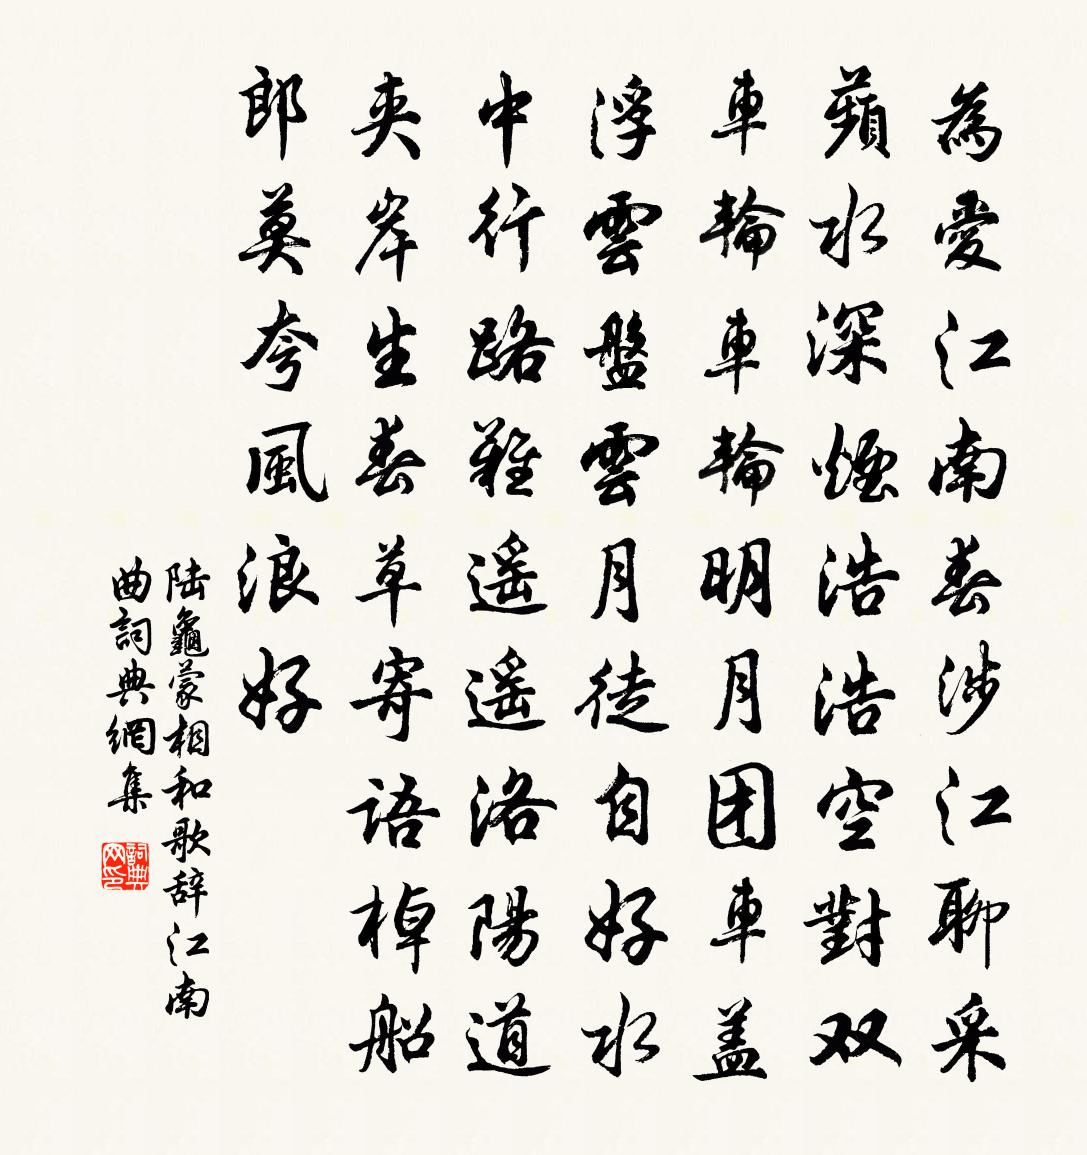 為愛江南春涉江聊采
蘋水深煙浩浩空對双
車輪車輪明月团車盖
浮雲盤雲月徒自好水
中行路難遥遥洛陽道
夾岸生春草寄語棹船
郎莫夸風浪好
陆龜蒙相和歌辞江南
曲詞典網集
詞典
网印